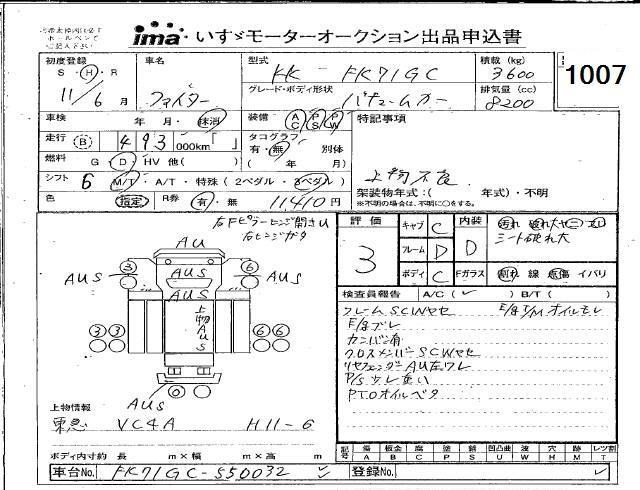 ima いすゞモーターオークション出品申込書
1007
初度登録 S・H・R 11/6月
車名 ファイター
型式 KK-FK71GC
グレード・ボディ形状 バキュームカー
積載(kg) 3600
排気量(cc) 8200
車検 年・月・抹消
装備 AC PS PW
特記事項
走行 B 493 000km「 」
タコグラフ 有・無 別体
( 年 月)
燃料 G・D・HV 他( )
上物不良
シフト 6 M/T・A/T・特殊(2ペダル・3ペダル)
架装物年式:( 年式)・不明
※不明の場合は、不明に○をする。
色 指定 R券 有・無 11410円
右Fピラーヒンジ開きU
右ヒンジガタ
評価 3
キャブ C
フレーム D
ボディ C
内装 D
汚れ
シート破れ大
Fガラス 割れ 線 点傷 イバリ
検査員報告 A/C(✓) B/T( )
フレームSCWヤセ
E/gブレ
カンバン有
クロスメンバーSCWヤセ
リヤフェンダーAU左ワレ
P/S少し重い
PTOオイルベタ
E/g T/M オイルモレ
AU
3
6
AUS
AUS
AUS
AUS
上物AUS
3 3
6 6
AUS
上物情報
東急 VC4A H11-6
ボディ内寸約 長 m×幅 m×高 m
記号 傷A 板金B 腐C 塗P 錆S 凹凸曲U 波W 穴H 跡M レツ割T
車台No. FK71GC-550032
登録No.